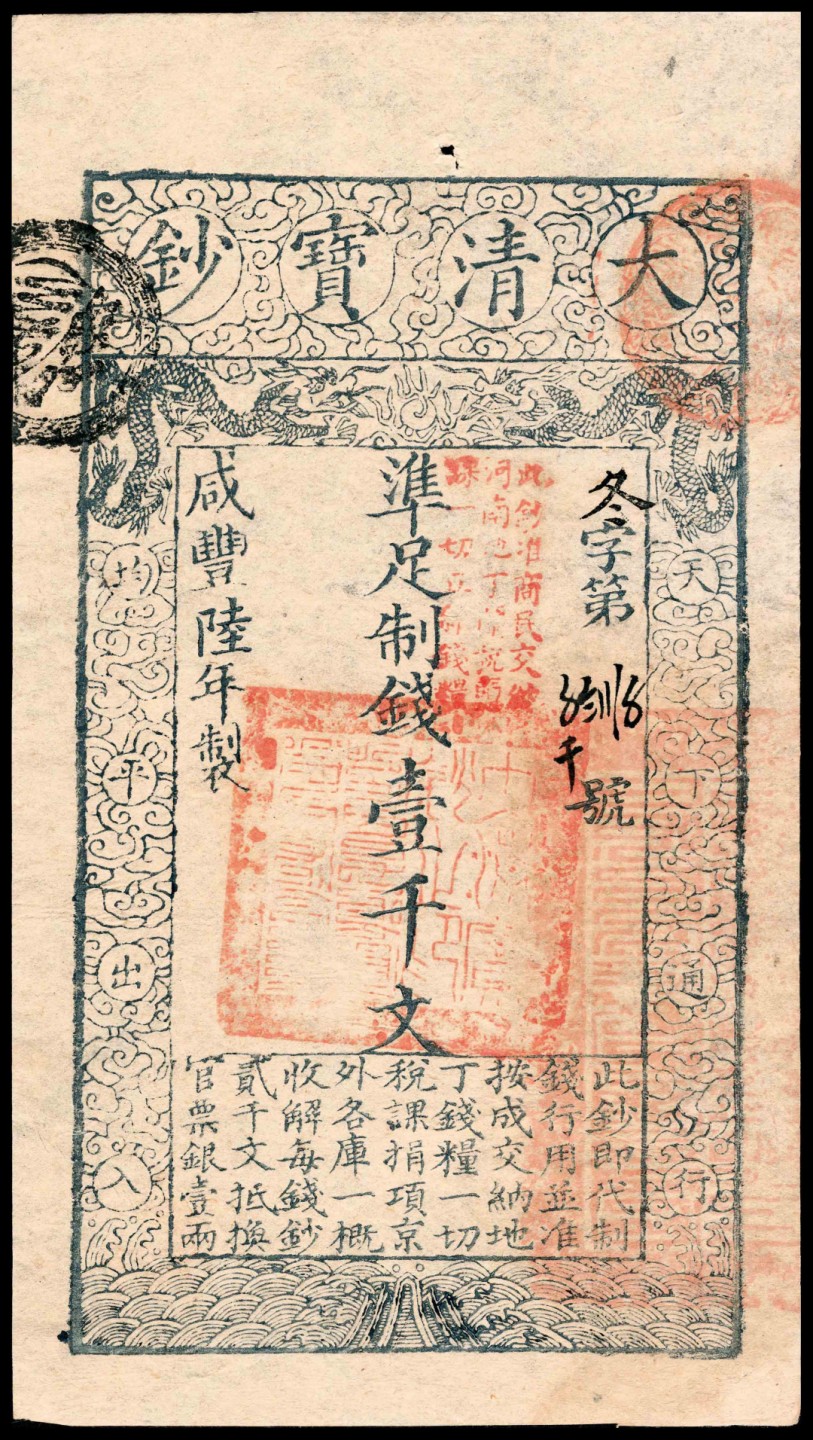 大清寶鈔
天下通行
均平出入
冬字第
號
準足制錢壹千文
咸豐陸年製
此鈔即代制
錢行用並准
按成交納地
丁錢糧一切
稅課捐項京
外各庫一概
收解每錢鈔
貳千文抵換
官票銀壹兩
此鈔准商民交